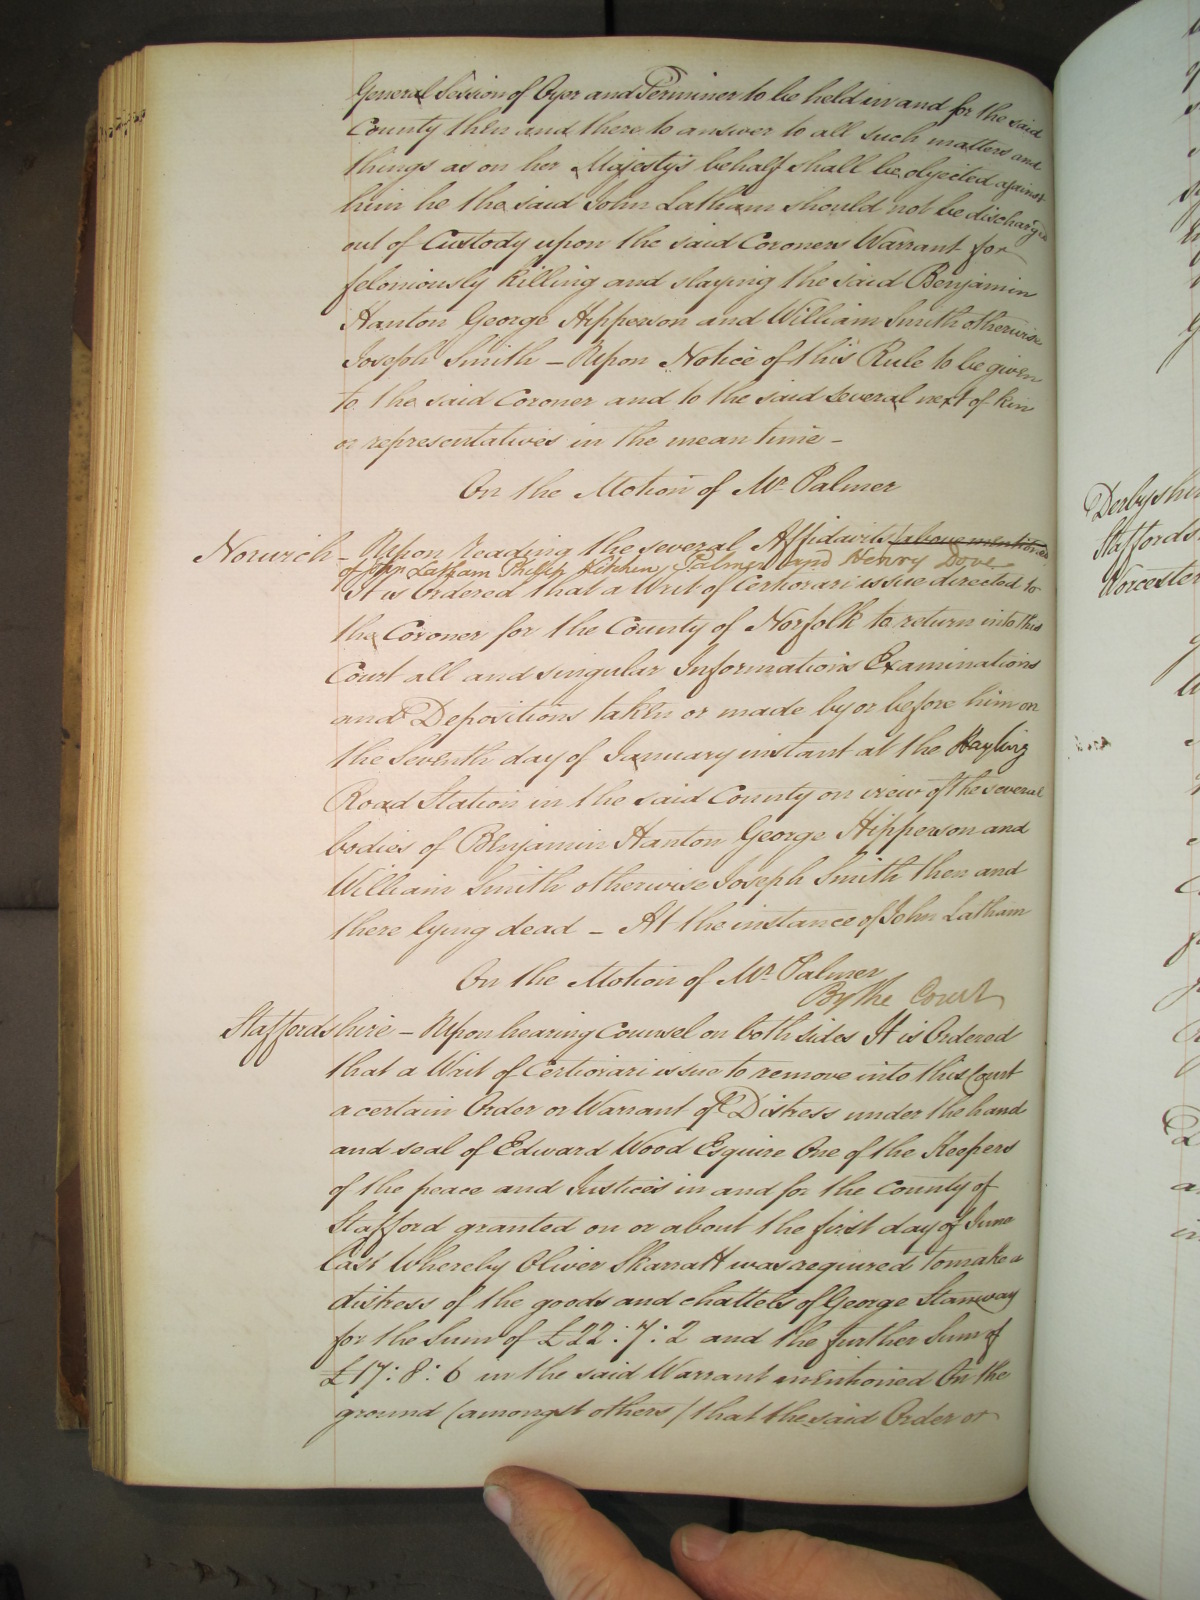 General Session of Oyer and Terminer to be held in and for the said
County then and there to answer to all such matters and
things as on her Majesty's behalf shall be objected against
him he the said John Latham should not be discharged
out of Custody upon the said Coroners Warrant for
feloniously killing and slaying the said Benjamin
Hanton George Hipperson and William Smith otherwise
Joseph Smith – Upon Notice of this Rule to be given
to the said Coroner and to the said several next of kin
or representatives in the mean time –
On the Motion of Mr. Palmer
Norwich – Upon Reading the several Affidavits above mentioned
of John Latham Philip Palmer and Henry Dove
It is Ordered that a Writ of Certiorari issue directed to
the Coroner for the County of Norfolk to return into this
Court all and singular Informations Examinations
and Depositions taken or made by or before him on
the seventh day of January instant at the
Road Station in the said County on view of the several
bodies of Benjamin Hanton George Hipperson and
William Smith otherwise Joseph Smith then and
there lying dead – At the instance of John Latham
On the Motion of Mr. Palmer
By the Court
Staffordshire – Upon hearing Counsel on both sides It is Ordered
that a Writ of Certiorari issue to remove into this Court
a certain Order or Warrant of Distress under the hand
and seal of Edward Wood Esquire One of the Keepers
of the peace and Justices in and for the County of
Stafford granted on or about the first day of June
last Whereby Oliver Skarratt was required to make a
distress of the goods and chattels of George Stanway
for the Sum of £22:7:2 and the further Sum of
£17:8:6 in the said Warrant mentioned On the
ground (amongst others) that the said Order or
Derbyshi
Staffords
Worcester